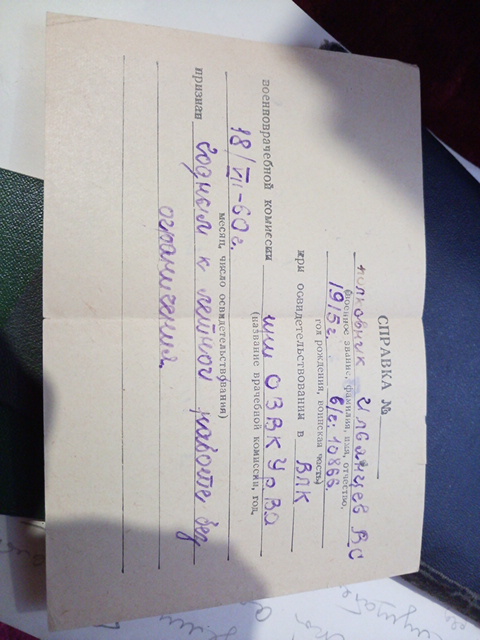 СПРАВКА №
полковник Илбанцев ВС
(военное звание, фамилия, имя, отчество,
1915г. в/г. 10866.
год рождения, воинская часть)
при освидетельствовании в ВЛК
при ОЗВКУрВО
(название врачебной комиссии, год,
военноврачебной комиссии
18/VII-60г.
месяц, число освидетельствования)
признан годным к летной работе без
ограничений.